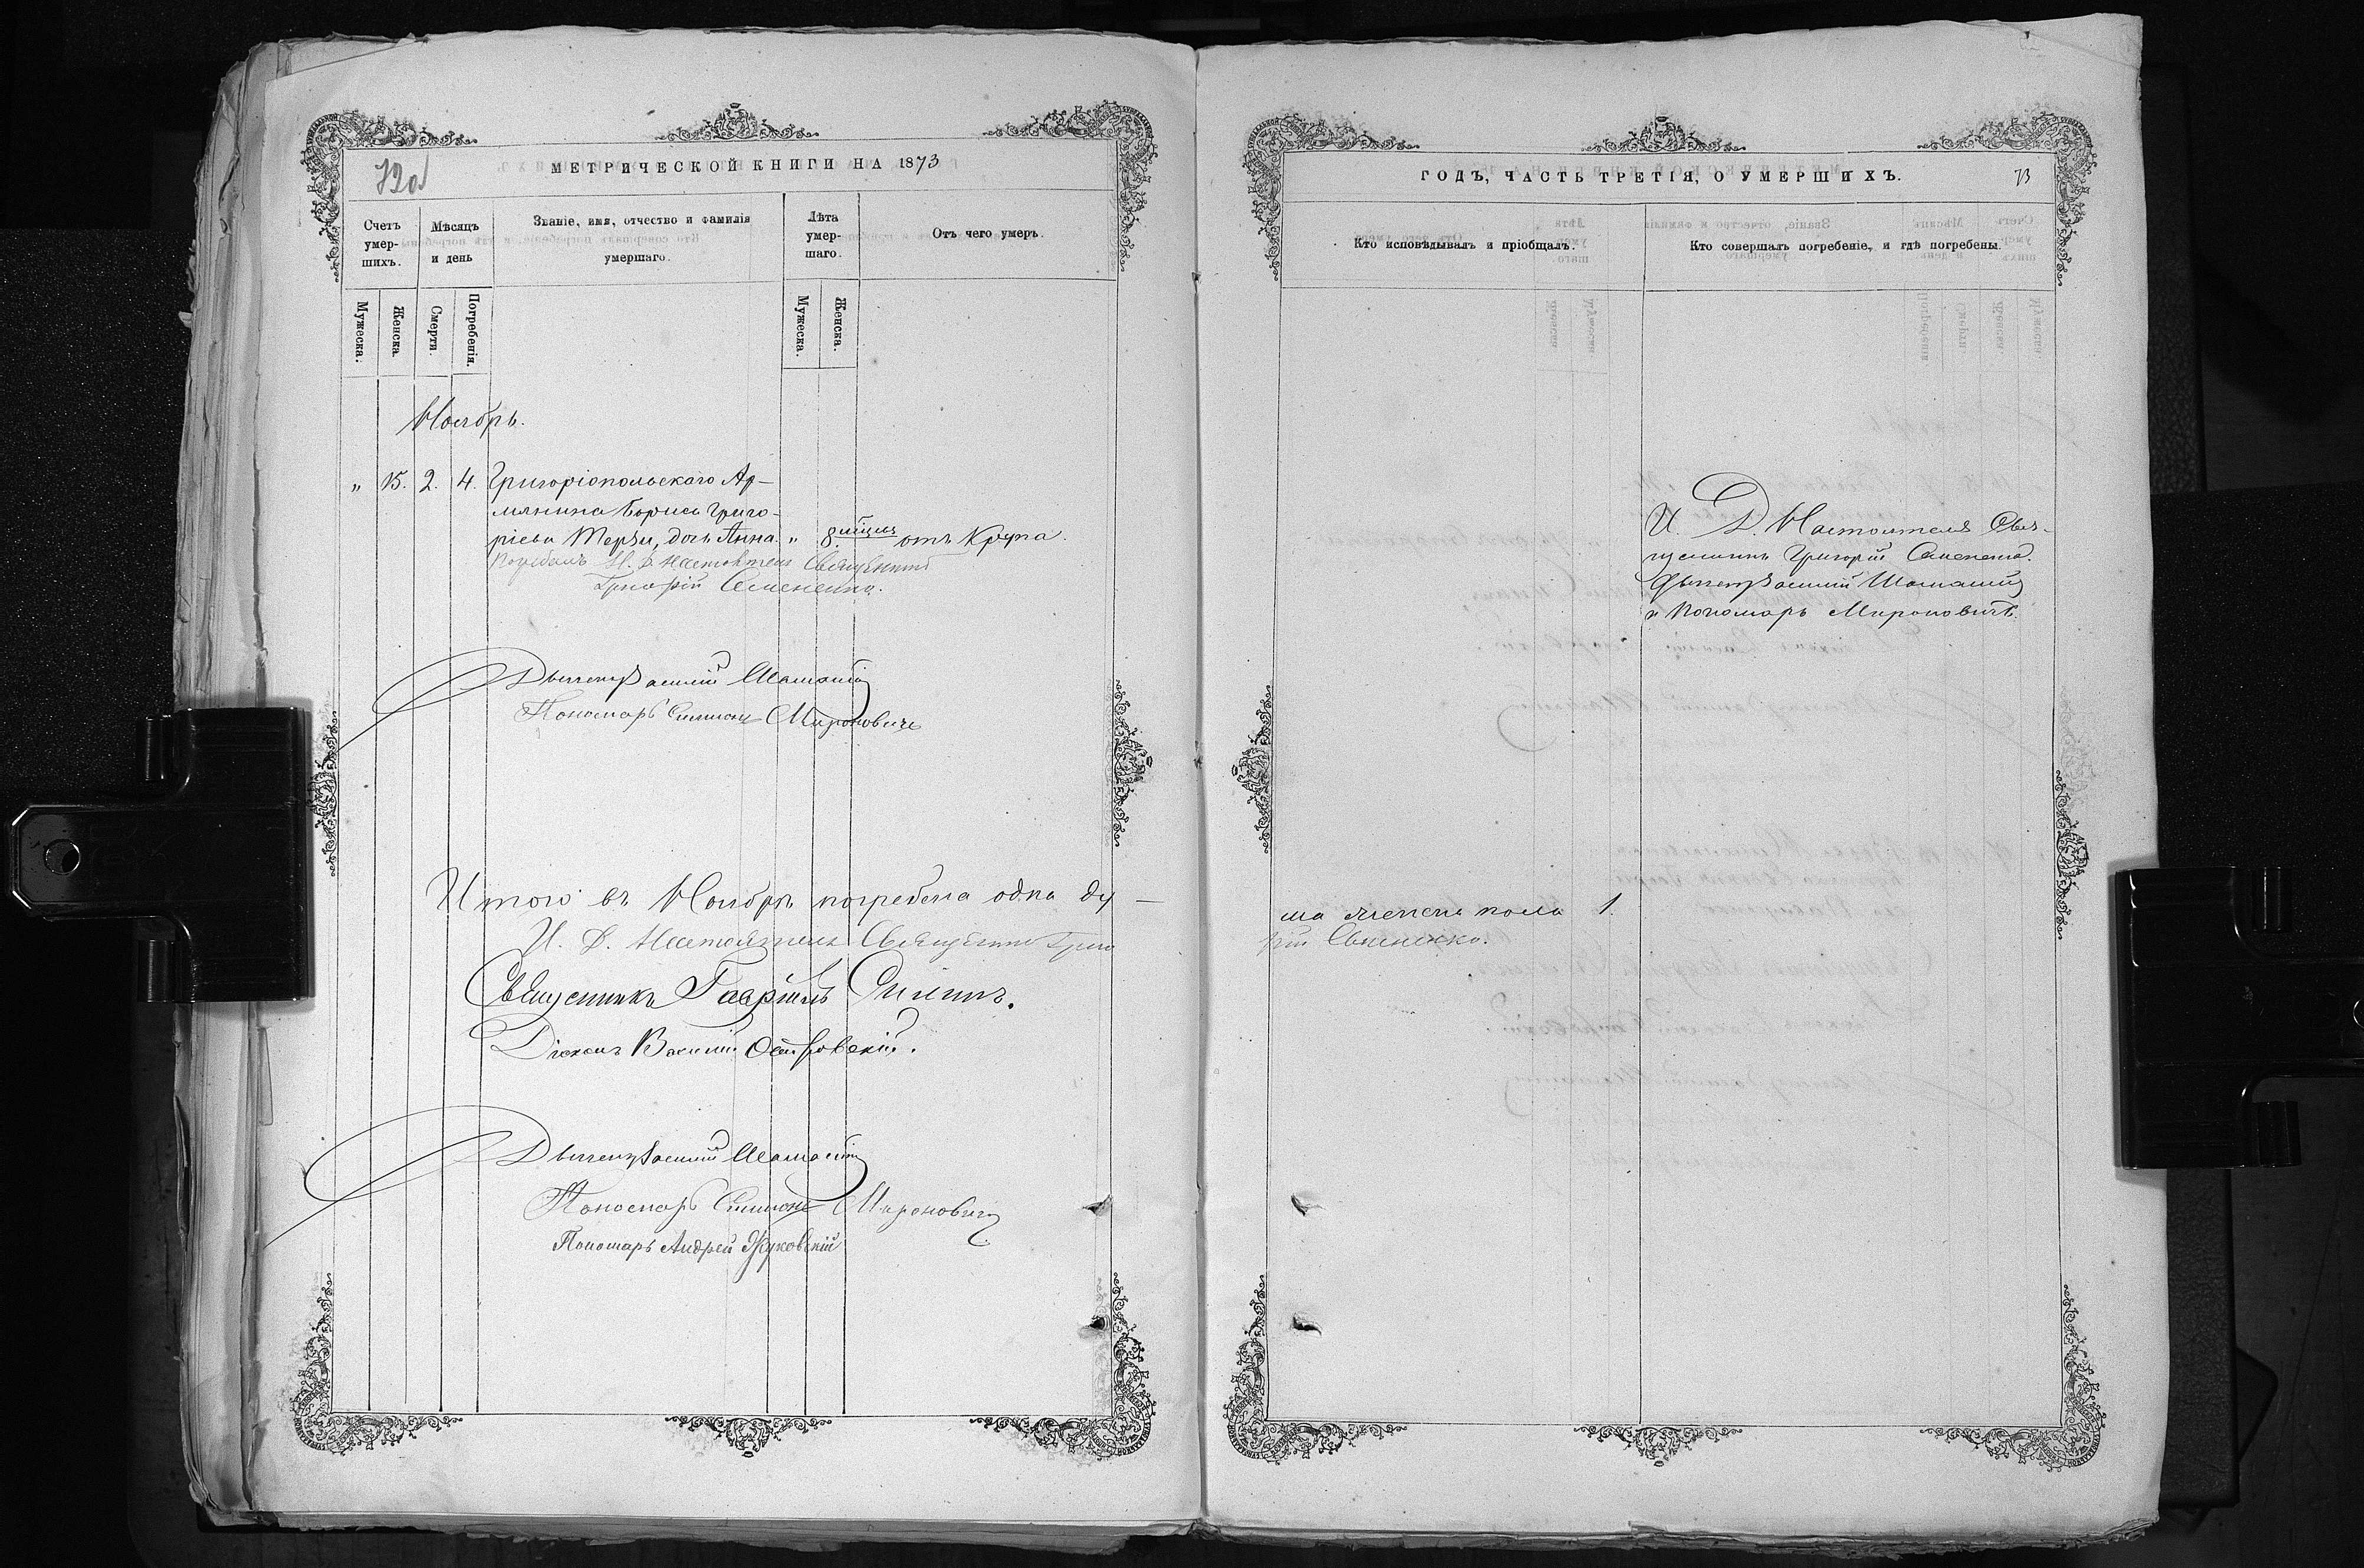 МЕТРИЧЕСКОЙ КНИГИ НА 1873
Счетъ умер-шихъ.
Мѣсяцъ и день
Званіе, имя, отчество и фамилія умершаго.
Лѣта умер-шаго.
Отъ чего умеръ.
Мужеска.
Женска.
Смерти.
Погребенія.
Мужеска.
Женска.
Ноябрь.
„ 15. 2. 4. Григоріопольскаго Ар-
мянина Бориса Григо-
рьева Терзи, дочь Анна. „ 8 мѣцевъ отъ Крупа.
Погребалъ И. Д. Настоятеля Священникъ
Григорій Семененко.
Василій
Пономарь Симеонъ Мироновичъ
Итого въ Ноябрѣ погребена одна ду-
И. Д. Настоятеля Священникъ Григо
Священникъ Гавріилъ
Діаконъ Василій Островскій.
Василій
Пономарь Симеонъ Мироновичъ
Пономарь Андрей Жуковскій
ГОДЪ, ЧАСТЬ ТРЕТІЯ, О УМЕРШИХЪ.
73
Кто исповѣдывалъ и пріобщалъ.
Кто совершалъ погребеніе, и гдѣ погребены.
И. Д. Настоятеля Свя-
щенникъ Григорій Семененко.
Василій
и Пономарь Мироновичъ.
ша женска пола 1.
рій Семененко.